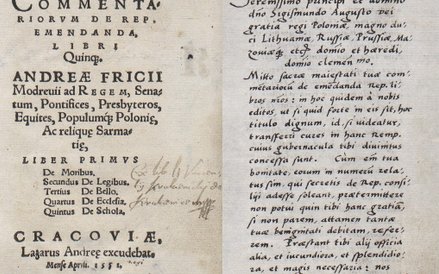 COMMENTA-
RIORVM DE REP.
EMENDANDA,
LIBRI
Quinq;
ANDREÆ FRICII
Modreuii ad REGEM, Sena-
tum, Pontifices, Presbyteros,
Equites, Populumq; Polonię,
Ac reliquę Sarma-
tię,
LIBER PRIMVS
De Moribus.
Secundus De Legibus.
Tertius De Bello.
Quartus De Ecclesia.
Quintus De Schola.
CRACOVIÆ,
Lazarus Andreę excudebat.
Mense Aprili. 1551.
Serenissimo principi et domino
dño Sigismundo Augusto Dei
gratia regi Poloniæ, magno du-
ci Lithuaniæ, Russiæ, Prussiæ, Ma-
zouiæq; etc; domino et hæredi,
domino clemen mo.
Mitto sacræ maiestati tuæ com-
mētariorū de emēdanda rep. li-
bros
editos, ut si quid forte in eis sit, hoc
titulo dignum, id, si uideatur,
transferri cures in hanc remp.
cuius gubernacula tibi diuinitus
concessa sunt. Cum em̄ tua
bonitate, eorum in numerū rela-
tus sim, qui secretis de Rep. consi-
lijs adesse soleant, prætermittere
non potui quin tibi hanc gratiā,
si non parem, attamen tantæ
tuæ benignitati debitam, refer-
rem. Præstant tibi alij officia
alia, et iucundiora, et splendidio-
ra, et magis necessaria: nos